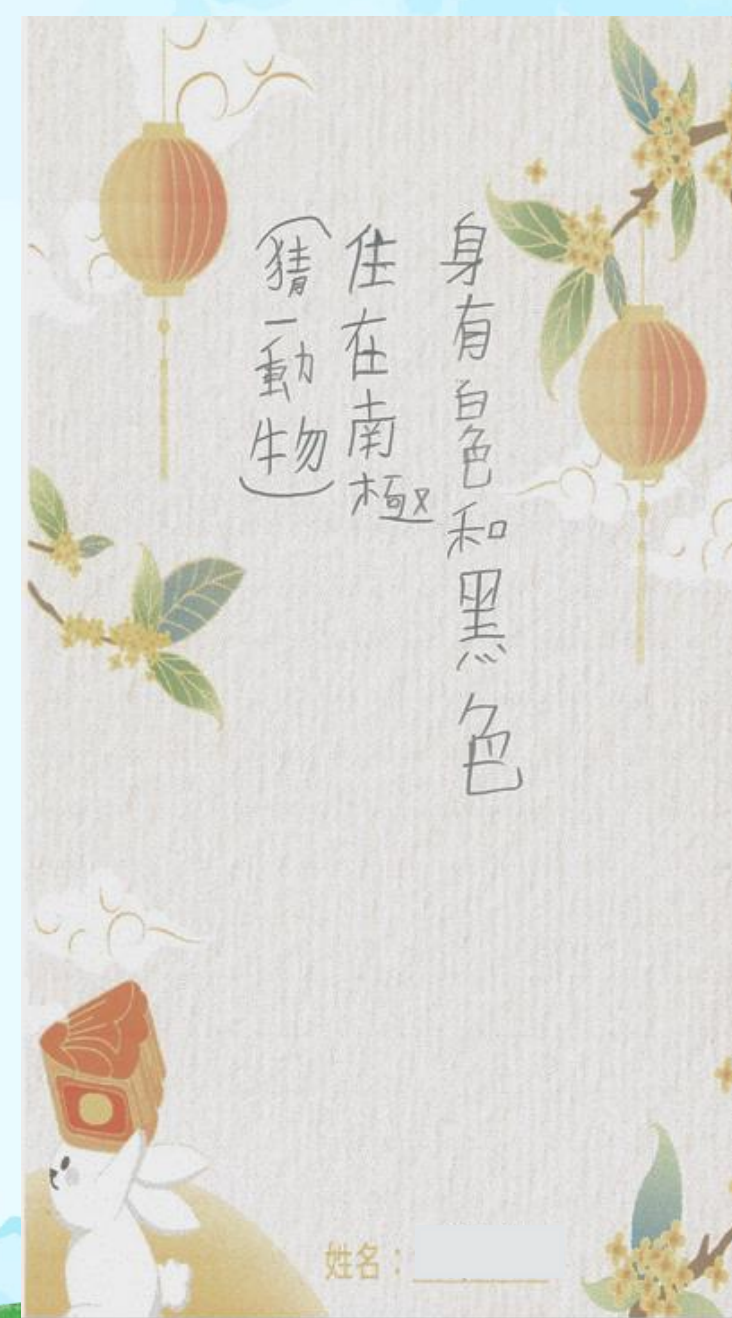 身有白色和黑色
住在南極
(猜一動物)
姓名：